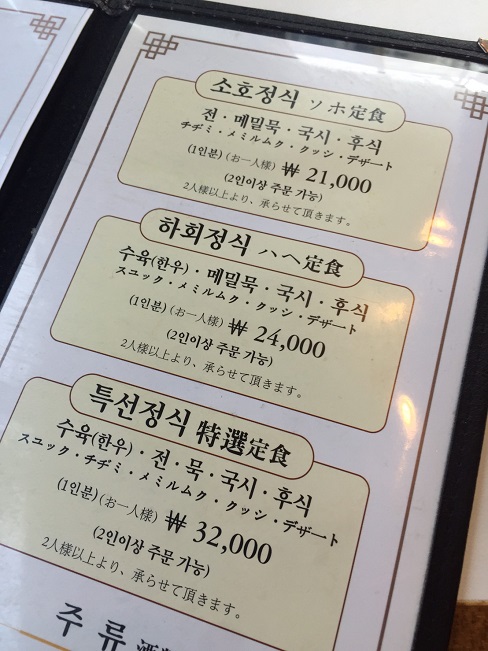 소호정식 ソホ定食
전·메밀묵·국시·후식
チヂミ・メミルムク・クッシ・デザート
(1인분) (お一人様) ₩ 21,000
(2인이상 주문 가능)
2人様以上より、承らせて頂きます。
하회정식 ハヘ定食
수육(한우)·메밀묵·국시·후식
スユック・メミルムク・クッシ・デザート
(1인분) (お一人様) ₩ 24,000
(2인이상 주문 가능)
2人様以上より、承らせて頂きます。
특선정식 特選定食
수육(한우)·전·묵·국시·후식
スユック・チヂミ・メミルムク・クッシ・デザート
(1인분) (お一人様) ₩ 32,000
(2인이상 주문 가능)
2人様以上より、承らせて頂きます。
주 류 酒